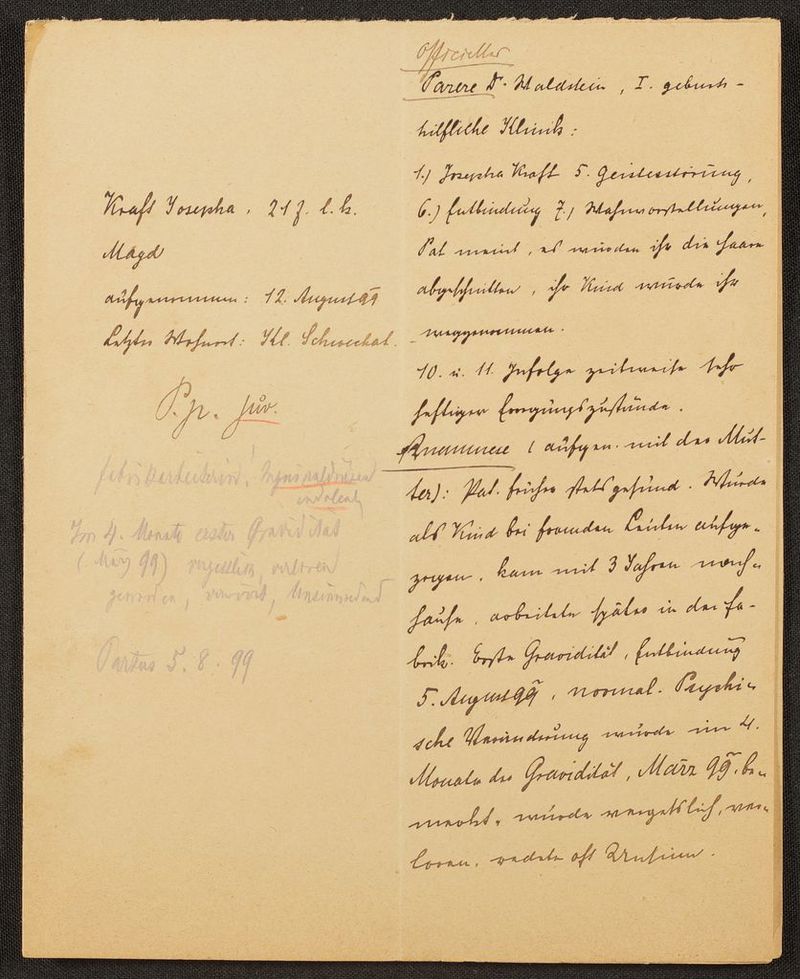 Kraft Josepha, 21 J. l. k.
Magd
aufgenommen: 12. August 99
Letzter Wohnort: Kl. Schwechat.
P. p. juv.
Fabriksarbeiterin.
indolent
Im 4. Monate erster Gravidität
(März 99) vergesslich, verloren
geworden, verwirrt, Unsinn redend
Partus 5. 8. 99
Officielles
Parere Dr. Waldstein, I. geburts-
hilfliche Klinik:
1.) Josepha Kraft 5. Geistesstörung,
6.) Entbindung 7.) Wahnvorstellungen,
Pat meint, es würden ihr die Haare
abgeschnitten, ihr Kind würde ihr
weggenommen.
10. u. 11. Infolge zeitweise sehr
heftiger Erregungszustände.
Anamnese (aufgen. mit der Mut-
ter): Pat. früher stets gesund. Wurde
als Kind bei fremden Leuten aufge-
zogen, kam mit 3 Jahren nach-
hause, arbeitete später in der Fa-
brik. Erste Gravidität, Entbindung
5. August 99, normal. Psychi-
sche Veränderung wurde im 4.
Monate der Gravidität, März 99, be-
merkt, wurde vergesslich, ver-
loren, redete oft Unsinn.